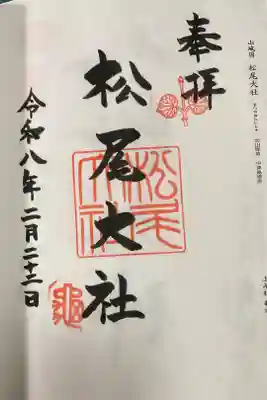 山城國 松尾大社
奉拝
松尾大社
松尾大社
令和八年二月二十三日